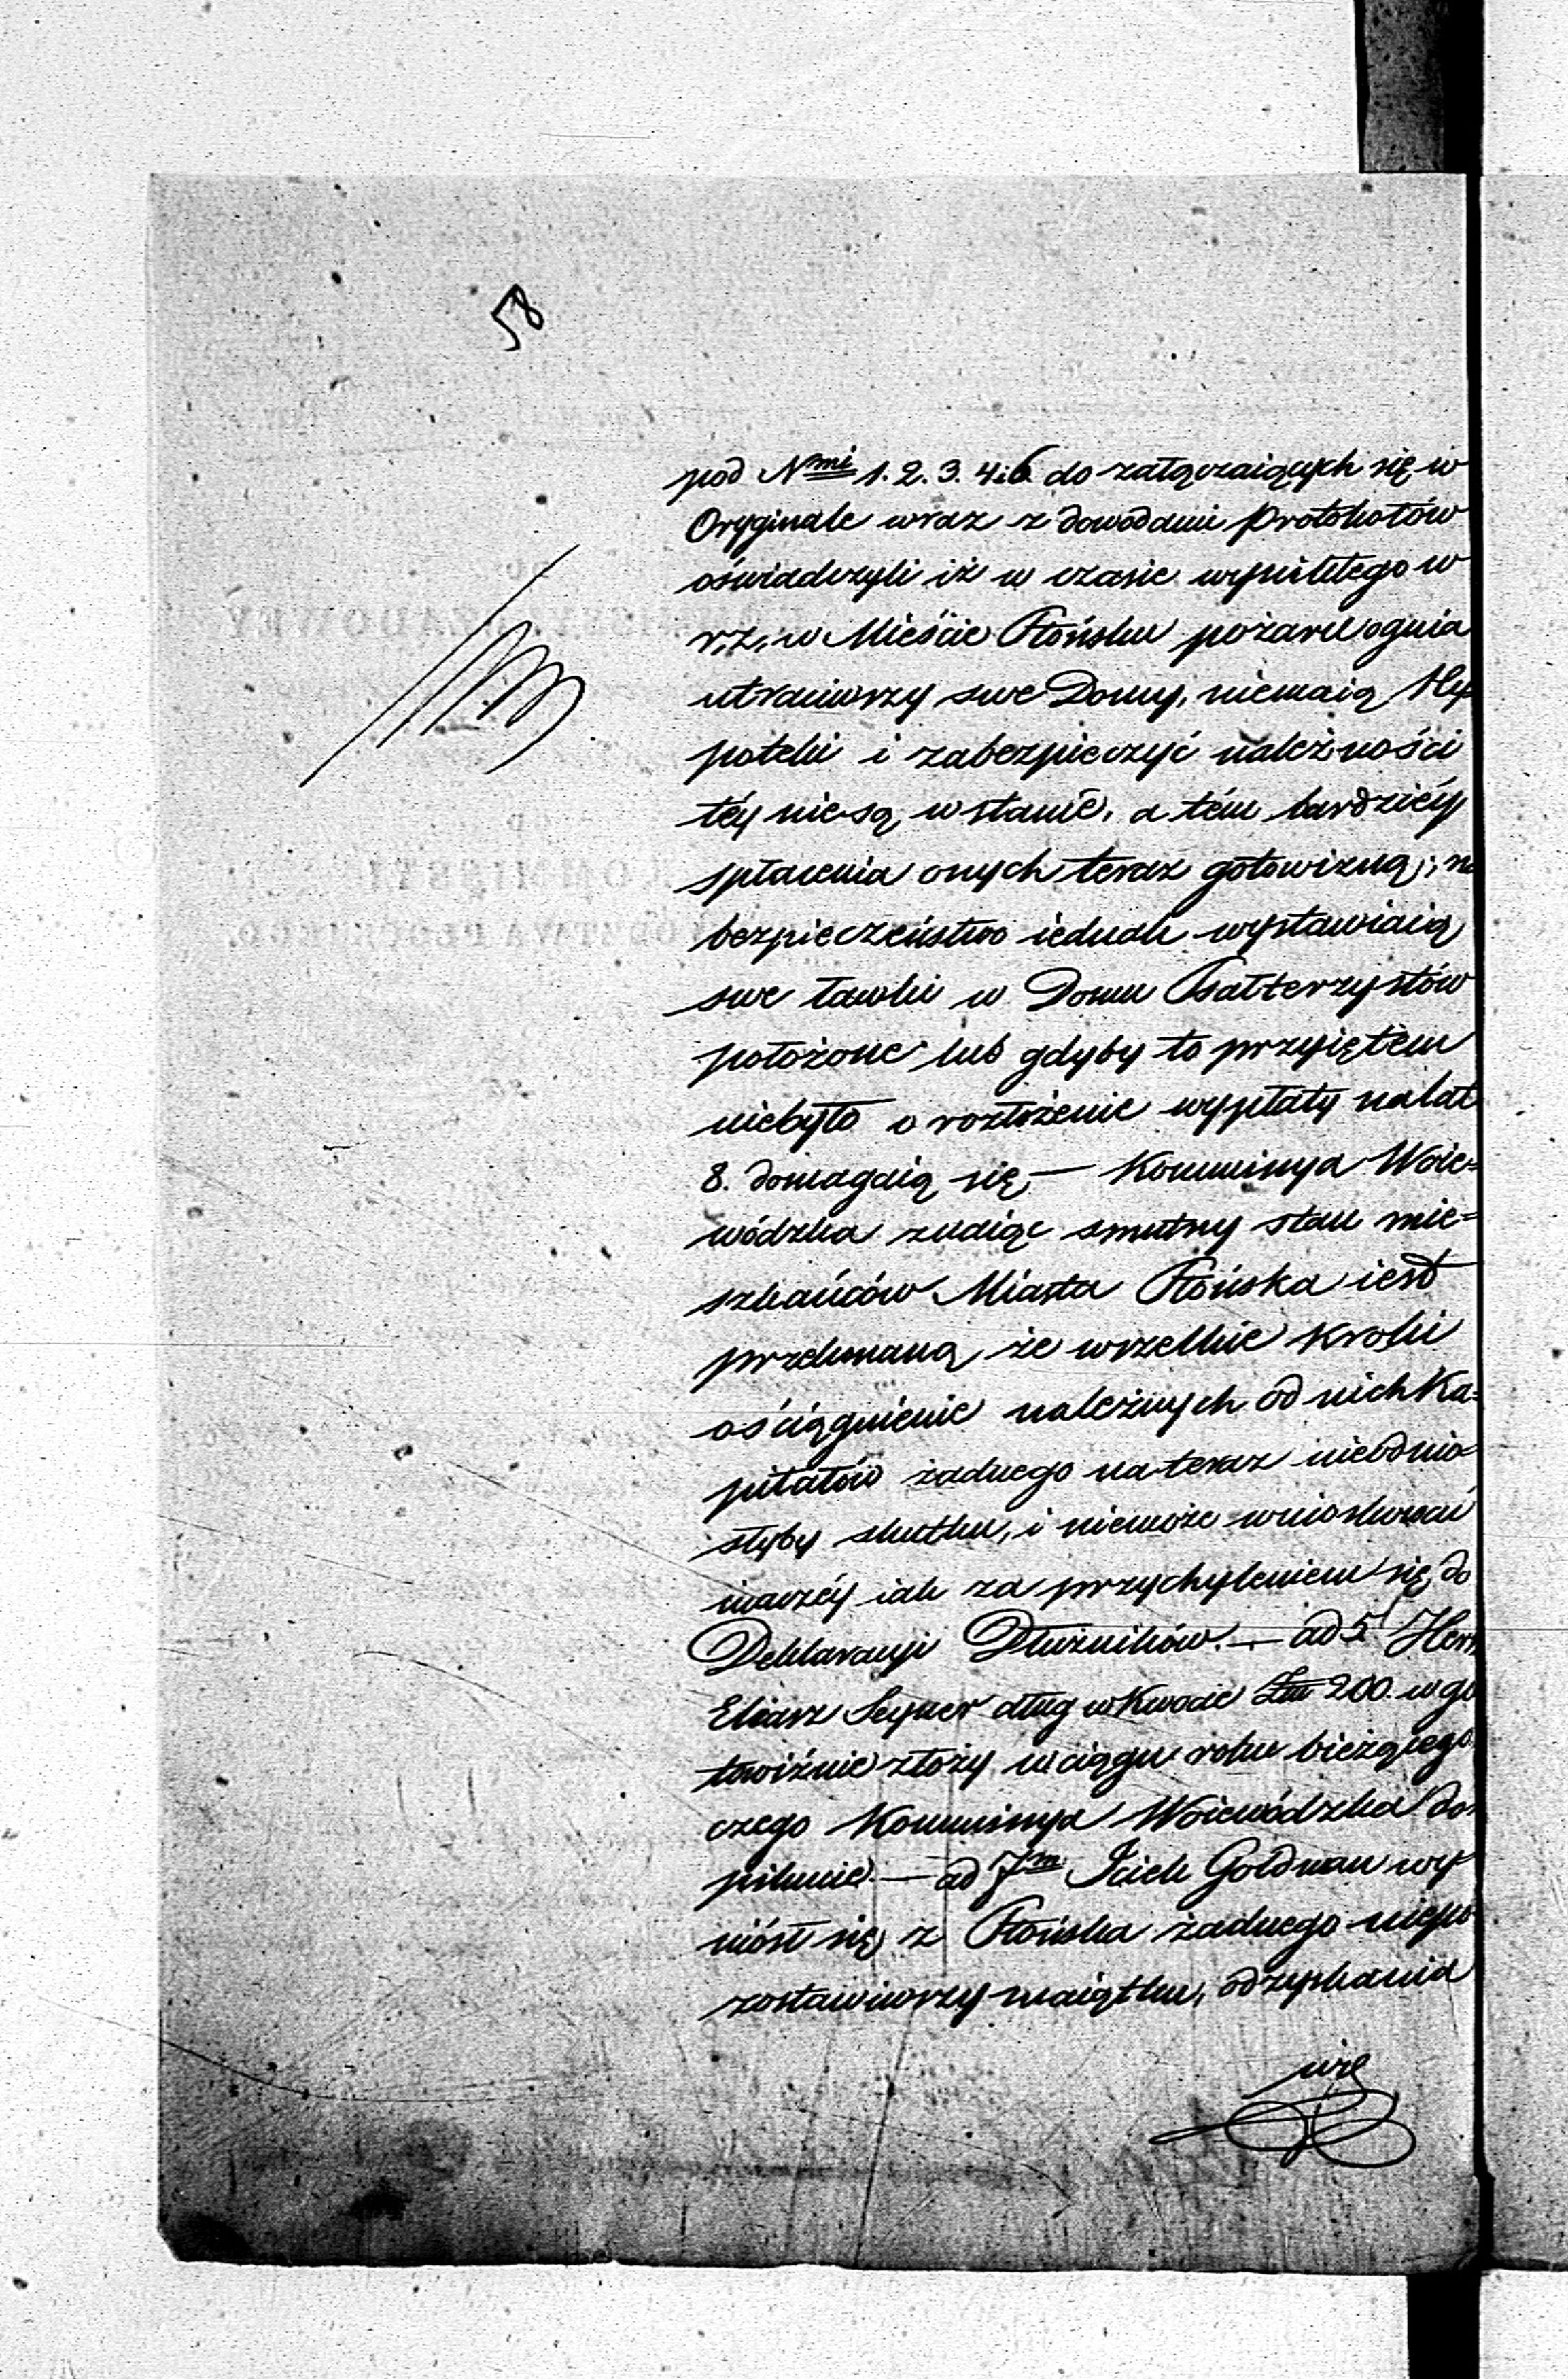 58
pod Nmi 1. 2. 3. 4. i 6. do załączaiących się w
Oryginale wraz z dowodami Protokołów
oświadczyli iż w czasie wynikłego w
r. z. w Mieście Płońsku pożaru ognia
utraciwszy swe Domy, niemaią Hy
poteki i zabezpieczyć należności
téy nie są w stanie, a tém bardziéy
spłacenia onych teraz gotowizną; na
bezpieczeństwo iednak wystawiaią
swe ławki w Domu Psałterzystów
położone lub gdyby to przyiętem
niebyło o rozłożenie wypłaty na lat
8. domagaią się — Kommissya Woie=
wódzka znaiąc smutny stan mie=
szkańców Miasta Płońska iest
przekonaną że wszelkie kroki
o ściągnienie należnych od nich Ka=
pitałów żadnego na teraz nieodnio=
słyby skutku, i niemoże wnioskować
inaczéy iak za przychyleniem się do
Deklaracyi Dłużników. — ad 5 Hers
Eliasz dług w Kwocie Złp 200. w go
towiźnie złoży w ciągu roku bieżącego
czego Kommissya Woiewódzka do
pilnuie — ad 7m Icich Goldman wy
niósł się z Płońska żadnego niepo
zostawiwszy maiątku, odzyskania